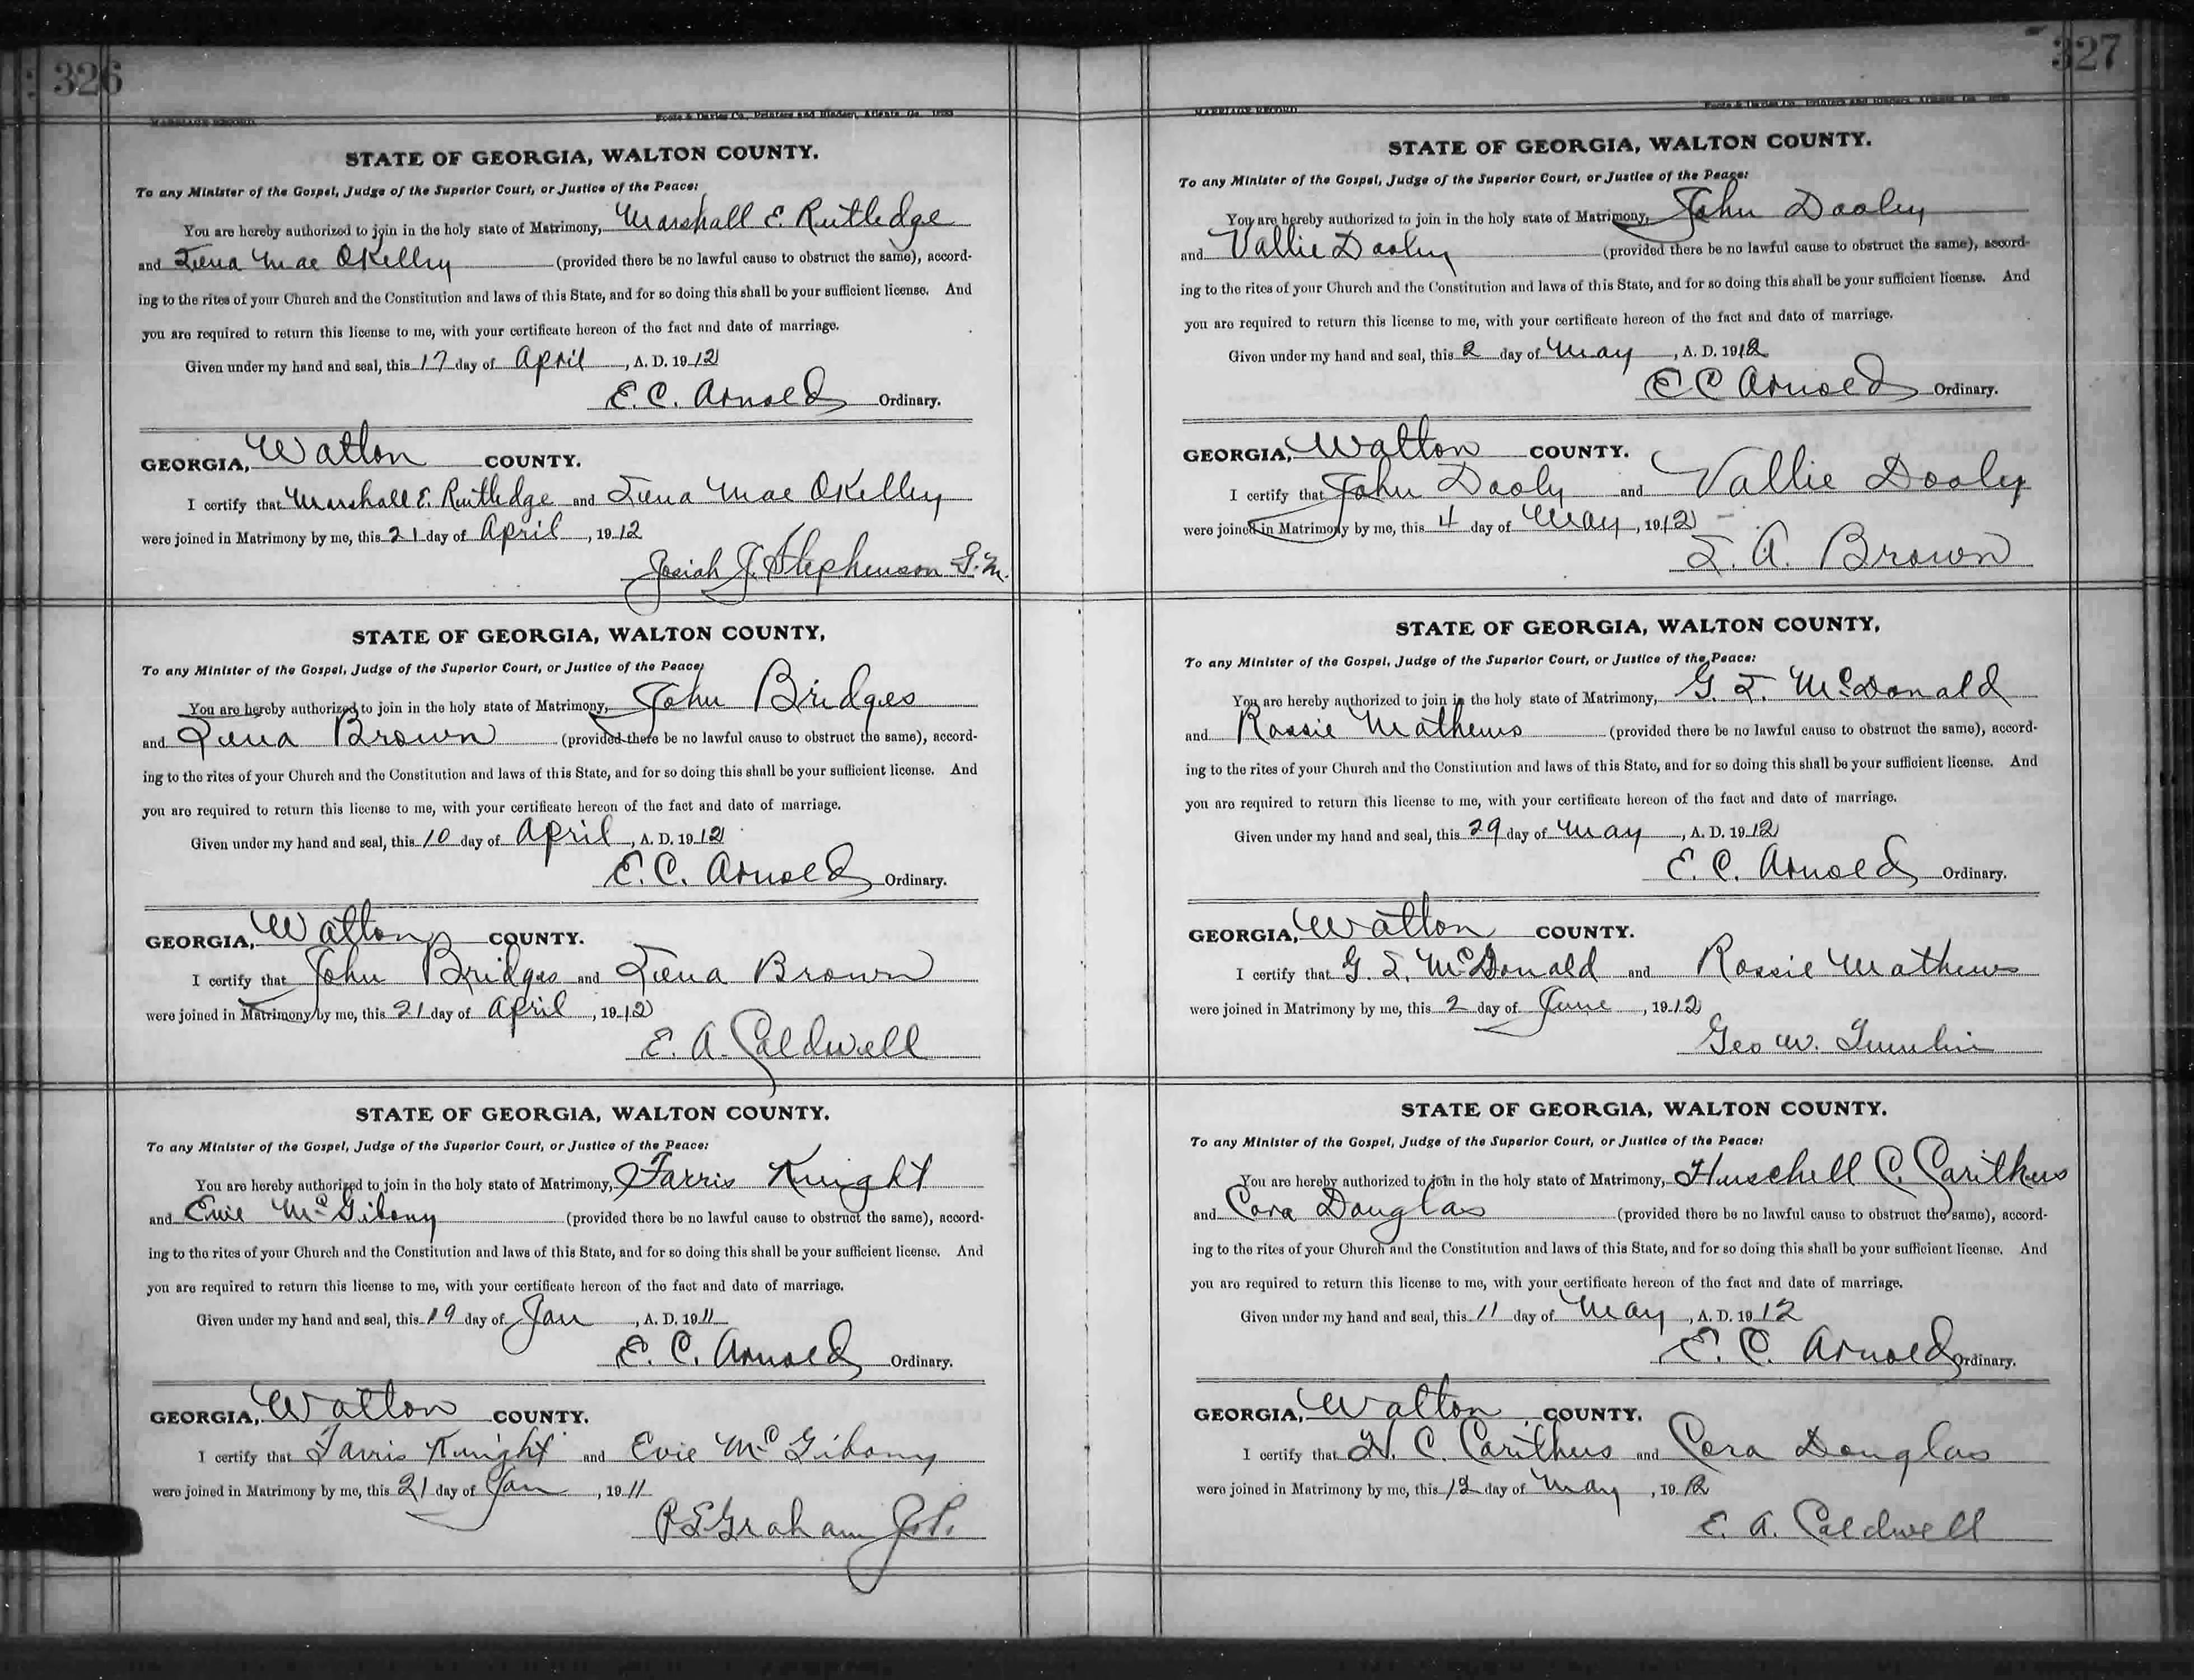 326
MARRIAGE RECORD
Foote & Davies Co., Printers and Binders, Atlanta, Ga.
STATE OF GEORGIA, WALTON COUNTY.
To any Minister of the Gospel, Judge of the Superior Court, or Justice of the Peace:
You are hereby authorized to join in the holy state of Matrimony, Marshall E. Rutledge
and Mae OKelley (provided there be no lawful cause to obstruct the same), accord-
ing to the rites of your Church and the Constitution and laws of this State, and for so doing this shall be your sufficient license. And
you are required to return this license to me, with your certificate hereon of the fact and date of marriage.
Given under my hand and seal, this 17 day of April, A. D. 1912
E. C. Arnold Ordinary.
GEORGIA, Walton COUNTY.
I certify that Marshall E. Rutledge and Mae OKelley
were joined in Matrimony by me, this 21 day of April, 1912
Josiah J. Stephenson
STATE OF GEORGIA, WALTON COUNTY,
To any Minister of the Gospel, Judge of the Superior Court, or Justice of the Peace:
You are hereby authorized to join in the holy state of Matrimony, John Bridges
and Brown (provided there be no lawful cause to obstruct the same), accord-
ing to the rites of your Church and the Constitution and laws of this State, and for so doing this shall be your sufficient license. And
you are required to return this license to me, with your certificate hereon of the fact and date of marriage.
Given under my hand and seal, this 10 day of April, A. D. 1912
E. C. Arnold Ordinary.
GEORGIA, Walton COUNTY.
I certify that John Bridges and Brown
were joined in Matrimony by me, this 21 day of April, 1912
E. A. Caldwell
STATE OF GEORGIA, WALTON COUNTY.
To any Minister of the Gospel, Judge of the Superior Court, or Justice of the Peace:
You are hereby authorized to join in the holy state of Matrimony, Farris Knight
and Evie McGibony (provided there be no lawful cause to obstruct the same), accord-
ing to the rites of your Church and the Constitution and laws of this State, and for so doing this shall be your sufficient license. And
you are required to return this license to me, with your certificate hereon of the fact and date of marriage.
Given under my hand and seal, this 19 day of Jan, A. D. 1911
E. C. Arnold Ordinary.
GEORGIA, Walton COUNTY.
I certify that Farris Knight and Evie McGibony
were joined in Matrimony by me, this 21 day of Jan, 1911
Graham J.P.
327
MARRIAGE RECORD
Foote & Davies Co., Printers and Binders, Atlanta, Ga.
STATE OF GEORGIA, WALTON COUNTY.
To any Minister of the Gospel, Judge of the Superior Court, or Justice of the Peace:
You are hereby authorized to join in the holy state of Matrimony, John Dooly
and Vallie Dooly (provided there be no lawful cause to obstruct the same), accord-
ing to the rites of your Church and the Constitution and laws of this State, and for so doing this shall be your sufficient license. And
you are required to return this license to me, with your certificate hereon of the fact and date of marriage.
Given under my hand and seal, this 2 day of May, A. D. 1912
E C Arnold Ordinary.
GEORGIA, Walton COUNTY.
I certify that John Dooly and Vallie Dooly
were joined in Matrimony by me, this 4 day of May, 1912
A. Brown
STATE OF GEORGIA, WALTON COUNTY,
To any Minister of the Gospel, Judge of the Superior Court, or Justice of the Peace:
You are hereby authorized to join in the holy state of Matrimony, G. T. McDonald
and Rossie Mathews (provided there be no lawful cause to obstruct the same), accord-
ing to the rites of your Church and the Constitution and laws of this State, and for so doing this shall be your sufficient license. And
you are required to return this license to me, with your certificate hereon of the fact and date of marriage.
Given under my hand and seal, this 29 day of May, A. D. 1912
E. C. Arnold Ordinary.
GEORGIA, Walton COUNTY.
I certify that G. T. McDonald and Rossie Mathews
were joined in Matrimony by me, this 2 day of June, 1912
Geo W.
STATE OF GEORGIA, WALTON COUNTY.
To any Minister of the Gospel, Judge of the Superior Court, or Justice of the Peace:
You are hereby authorized to join in the holy state of Matrimony, Hurschell C. Carithers
and Cora Douglas (provided there be no lawful cause to obstruct the same), accord-
ing to the rites of your Church and the Constitution and laws of this State, and for so doing this shall be your sufficient license. And
you are required to return this license to me, with your certificate hereon of the fact and date of marriage.
Given under my hand and seal, this 11 day of May, A. D. 1912
E. C. Arnold Ordinary.
GEORGIA, Walton COUNTY.
I certify that H. C. Carithers and Cora Douglas
were joined in Matrimony by me, this 12 day of May, 1912
E. A. Caldwell